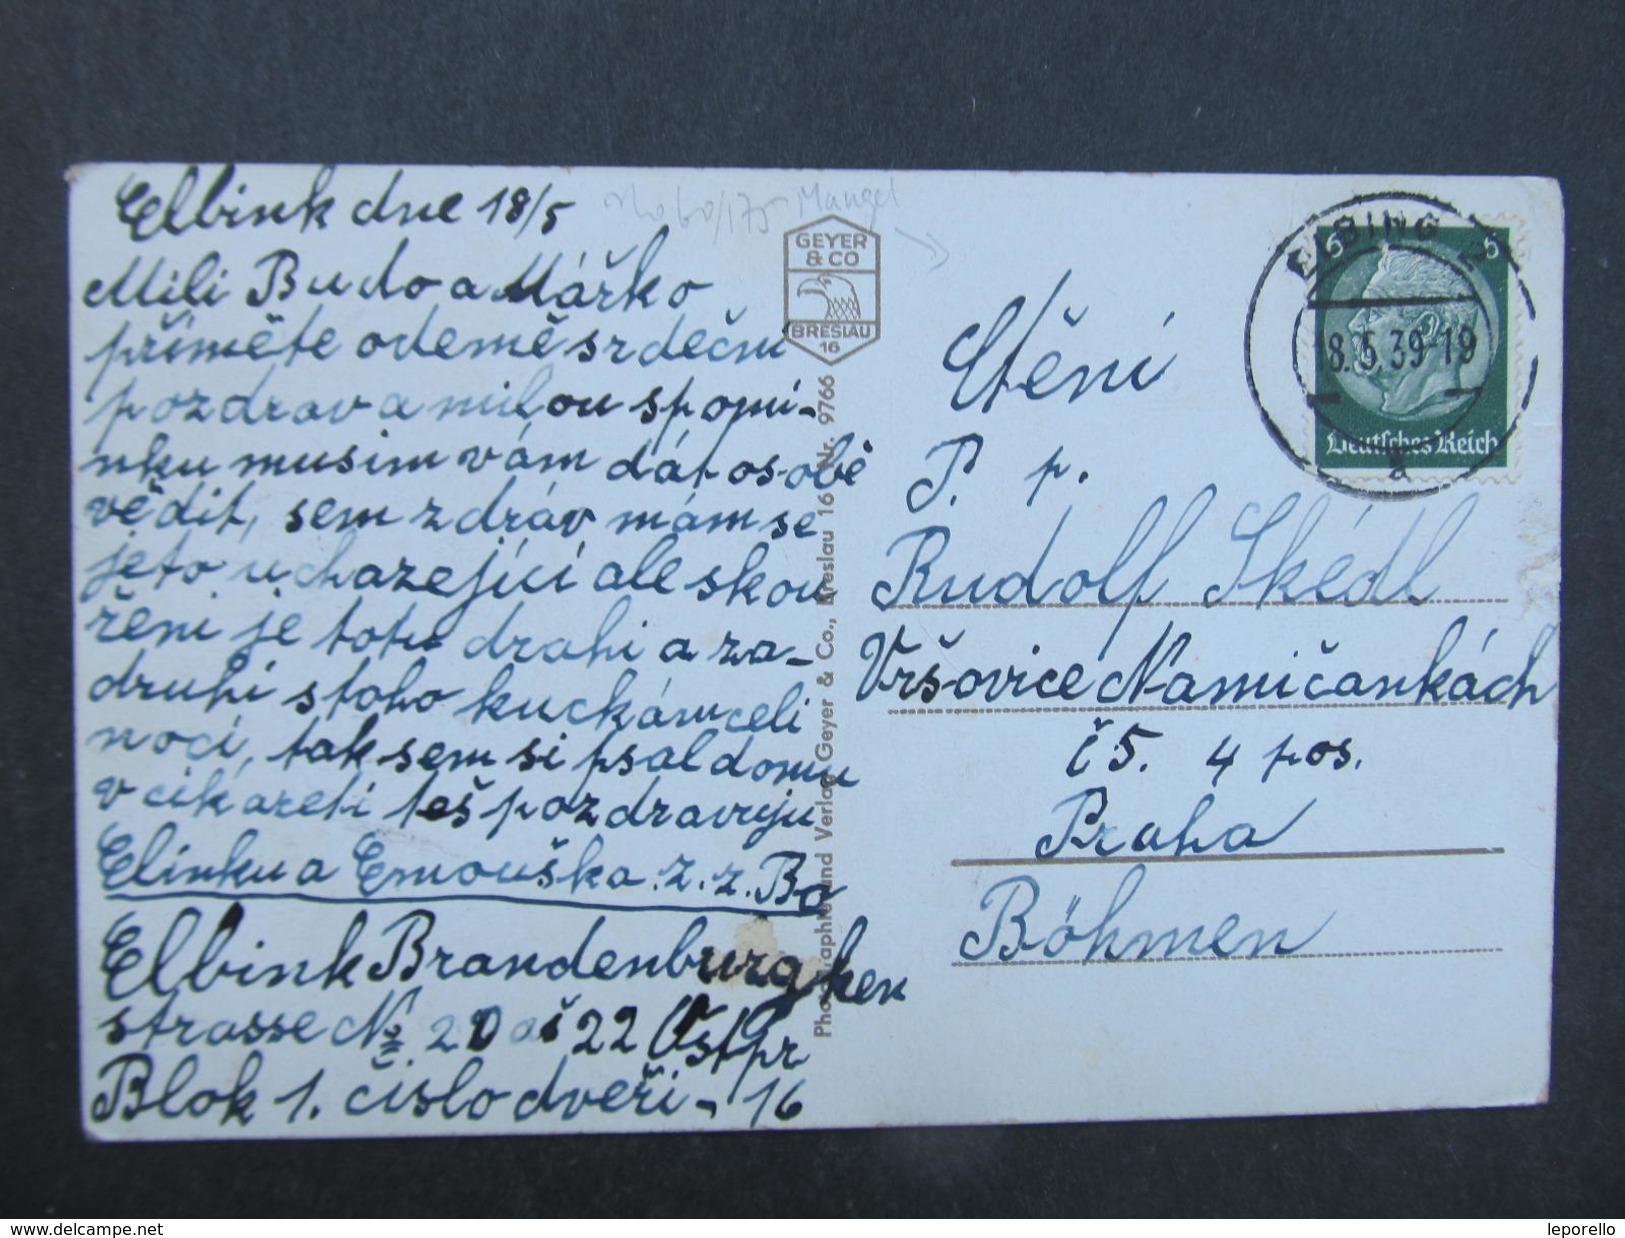 Elbink dne 18/5
Mili Budo a Mářko
přiměte odemě srdečni
pozdrav a milou spomi-
nku musim vám dát osobě
vědit, sem zdráv mám se
jeto ucházejíci ale skou
řeni je totu drahi a za-
druhi stoho kuckám celi
noci, tak sem si psal domu
v cikareti teš pozdravuju
Elinku a Ernouška. z. z. Ba
Elbink Brandenburgken
strasse № 20 aš 22 Ostpr
Blok 1. čislo dveři - 16
Mangel
GEYER
& CO
BRESLAU
16
Photographie und Verlag Geyer & Co., Breslau 16 Nr. 9766
ELBING 2
18.5.39-19
a
6 6
Deutsches Reich
Ctěni
P. p.
Rudolf Skédl
Vršovice Namičankách
č 5. 4 pos.
Praha
Böhmen
www.delcampe.net
leporello